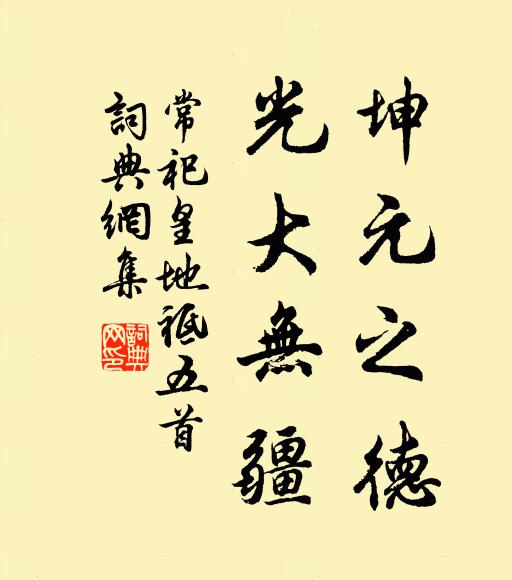 坤元之德
光大無疆
常祀皇地祗五首
詞典網集
詞典
网印